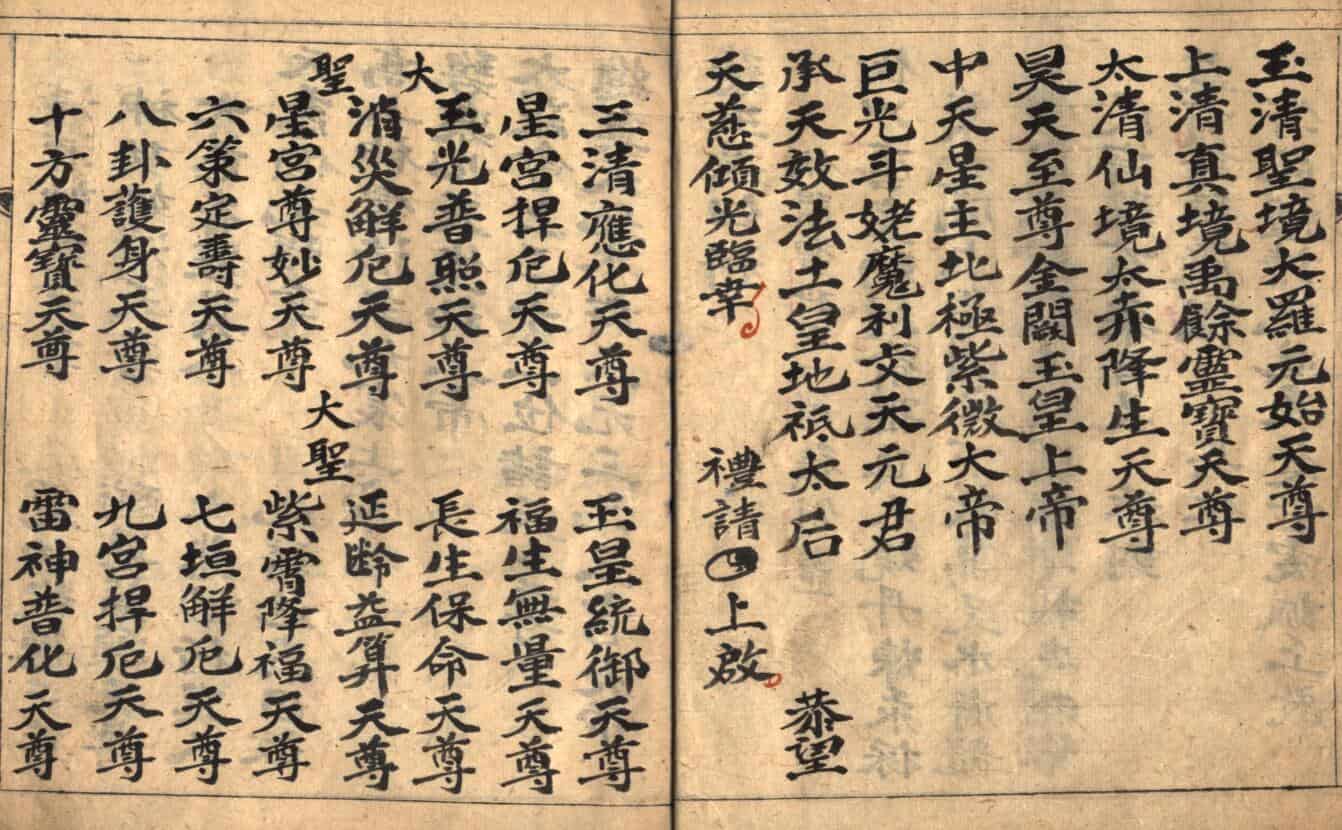 玉清聖境大羅元始天尊
上清真境禹餘靈寶天尊
太清仙境太赤降生天尊
昊天至尊金闕玉皇上帝
中天星主北極紫微大帝
巨光斗姥魔利支天元君
承天效法土皇地祗太后 恭望
天慈傾光臨幸 禮請 上啟
大聖
三清應化天尊 玉皇統御天尊
星宮捍厄天尊 福生無量天尊
玉光普照天尊 長生保命天尊
消災解厄天尊 延齡益算天尊
大聖
星宮尊妙天尊 紫霄降福天尊
六策定壽天尊 七垣解厄天尊
八卦護身天尊 九宮捍厄天尊
十方靈寶天尊 雷神普化天尊